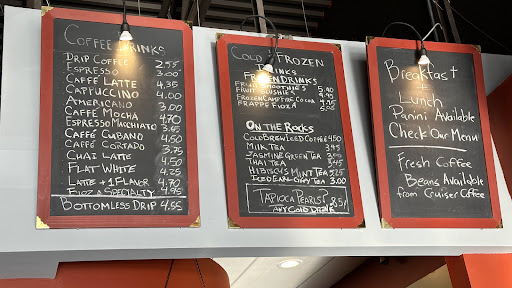 Coffee Drinks
Drip Coffee 2.55
Espresso 3.00
Caffe Latte 4.35
Cappuccino 4.00
Americano 3.00
Caffe Mocha 4.70
Espresso Macchiato 3.65
Caffé Cubano 4.50
Caffé Cortado 3.75
Chai Latte 4.50
Flat White 4.25
Latte + 1 Flavor 4.70
Specialty 4.95
Bottomless Drip 4.55
Cold & Frozen
Drinks
Frozen Drinks
Fruit Smoothies
Fruit Slushies
Frozen Campfire Cocoa
Frappe 5.05
On the Rocks
Cold Brewed Coffee 4.50
Milk Tea 3.45
Jasmine Green Tea
Thai Tea 3.45
Hibiscus Mint Tea
Iced Earl Grey Tea 3.00
Tapioca Pearls
Any Cold Drink
Breakfast
+
Lunch
Panini Available
Check Our Menu
Fresh Coffee
Beans Available
from Cruiser Coffee